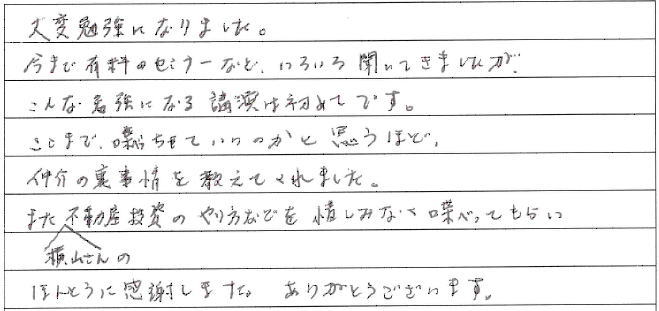 大変勉強になりました。
今まで有料のセミナーなど、いろいろ聞いてきましたが、
こんな勉強になる講演は初めてです。
ここまで、喋らせていいのかと思うほど、
仲介の裏事情を教えてくれました。
また不動産投資のやり方などを惜しみなく喋べってもらい
横山さんの
ほんとうに感謝しました。ありがとうございます。